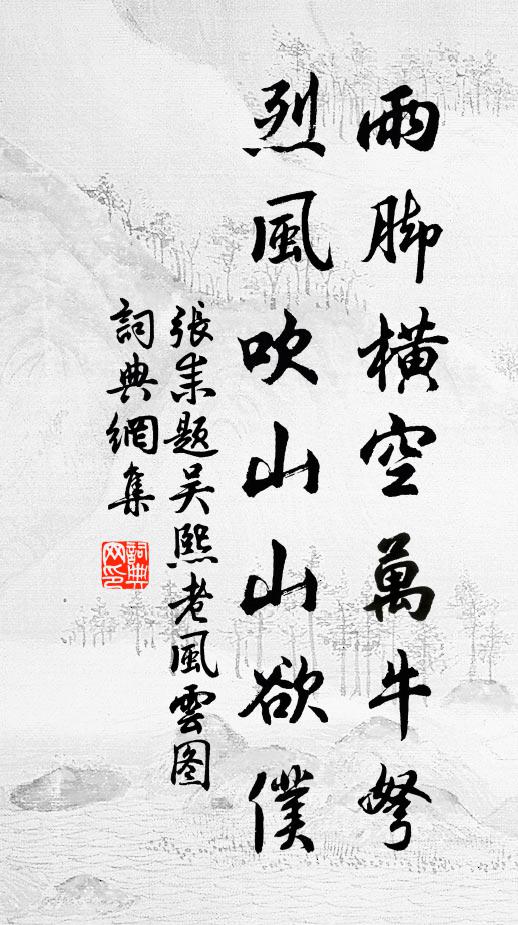 雨脚橫空萬牛弩
烈風吹山山欲僕
張耒題吳熙老風雲图
詞典網集
詞典网印